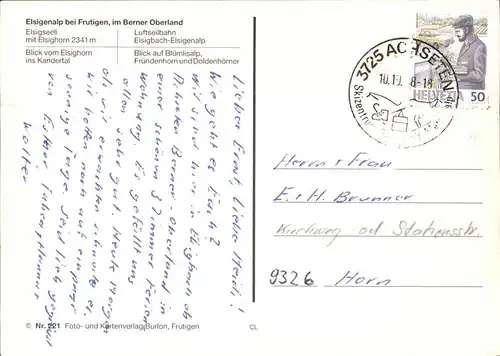 Elsigenalp bei Frutigen, im Berner Oberland
Elsigseeli
mit Elsighorn 2341 m
Blick vom Elsighorn
ins Kandertal
Luftseilbahn
Elsigbach-Elsigenalp
Blick auf Blümlisalp,
Fründenhorn und Doldenhörner
3725 ACHSETEN
HELVETIA 50
Lieber Ernst, liebe Heidi!
Wie geht es Euch?
Wir sind hier in Elsigbach ob
Berner-Oberland in
einer schönen 3 Zimmer Ferien
Wohnung. Es gefällt uns
allen sehr gut. Heute Morgen
als wir erwachten schneite es,
wir hoffen noch auf ein paar
sonnige Tage. Seid lieb gegrüsst
von Esther
Walter
Herrn + Frau
E. + H. Brunner
Kirchweg od Stationsstr.
9326 Horn
© Nr. 221 Foto- und Kartenverlag Burlon, Frutigen
CL